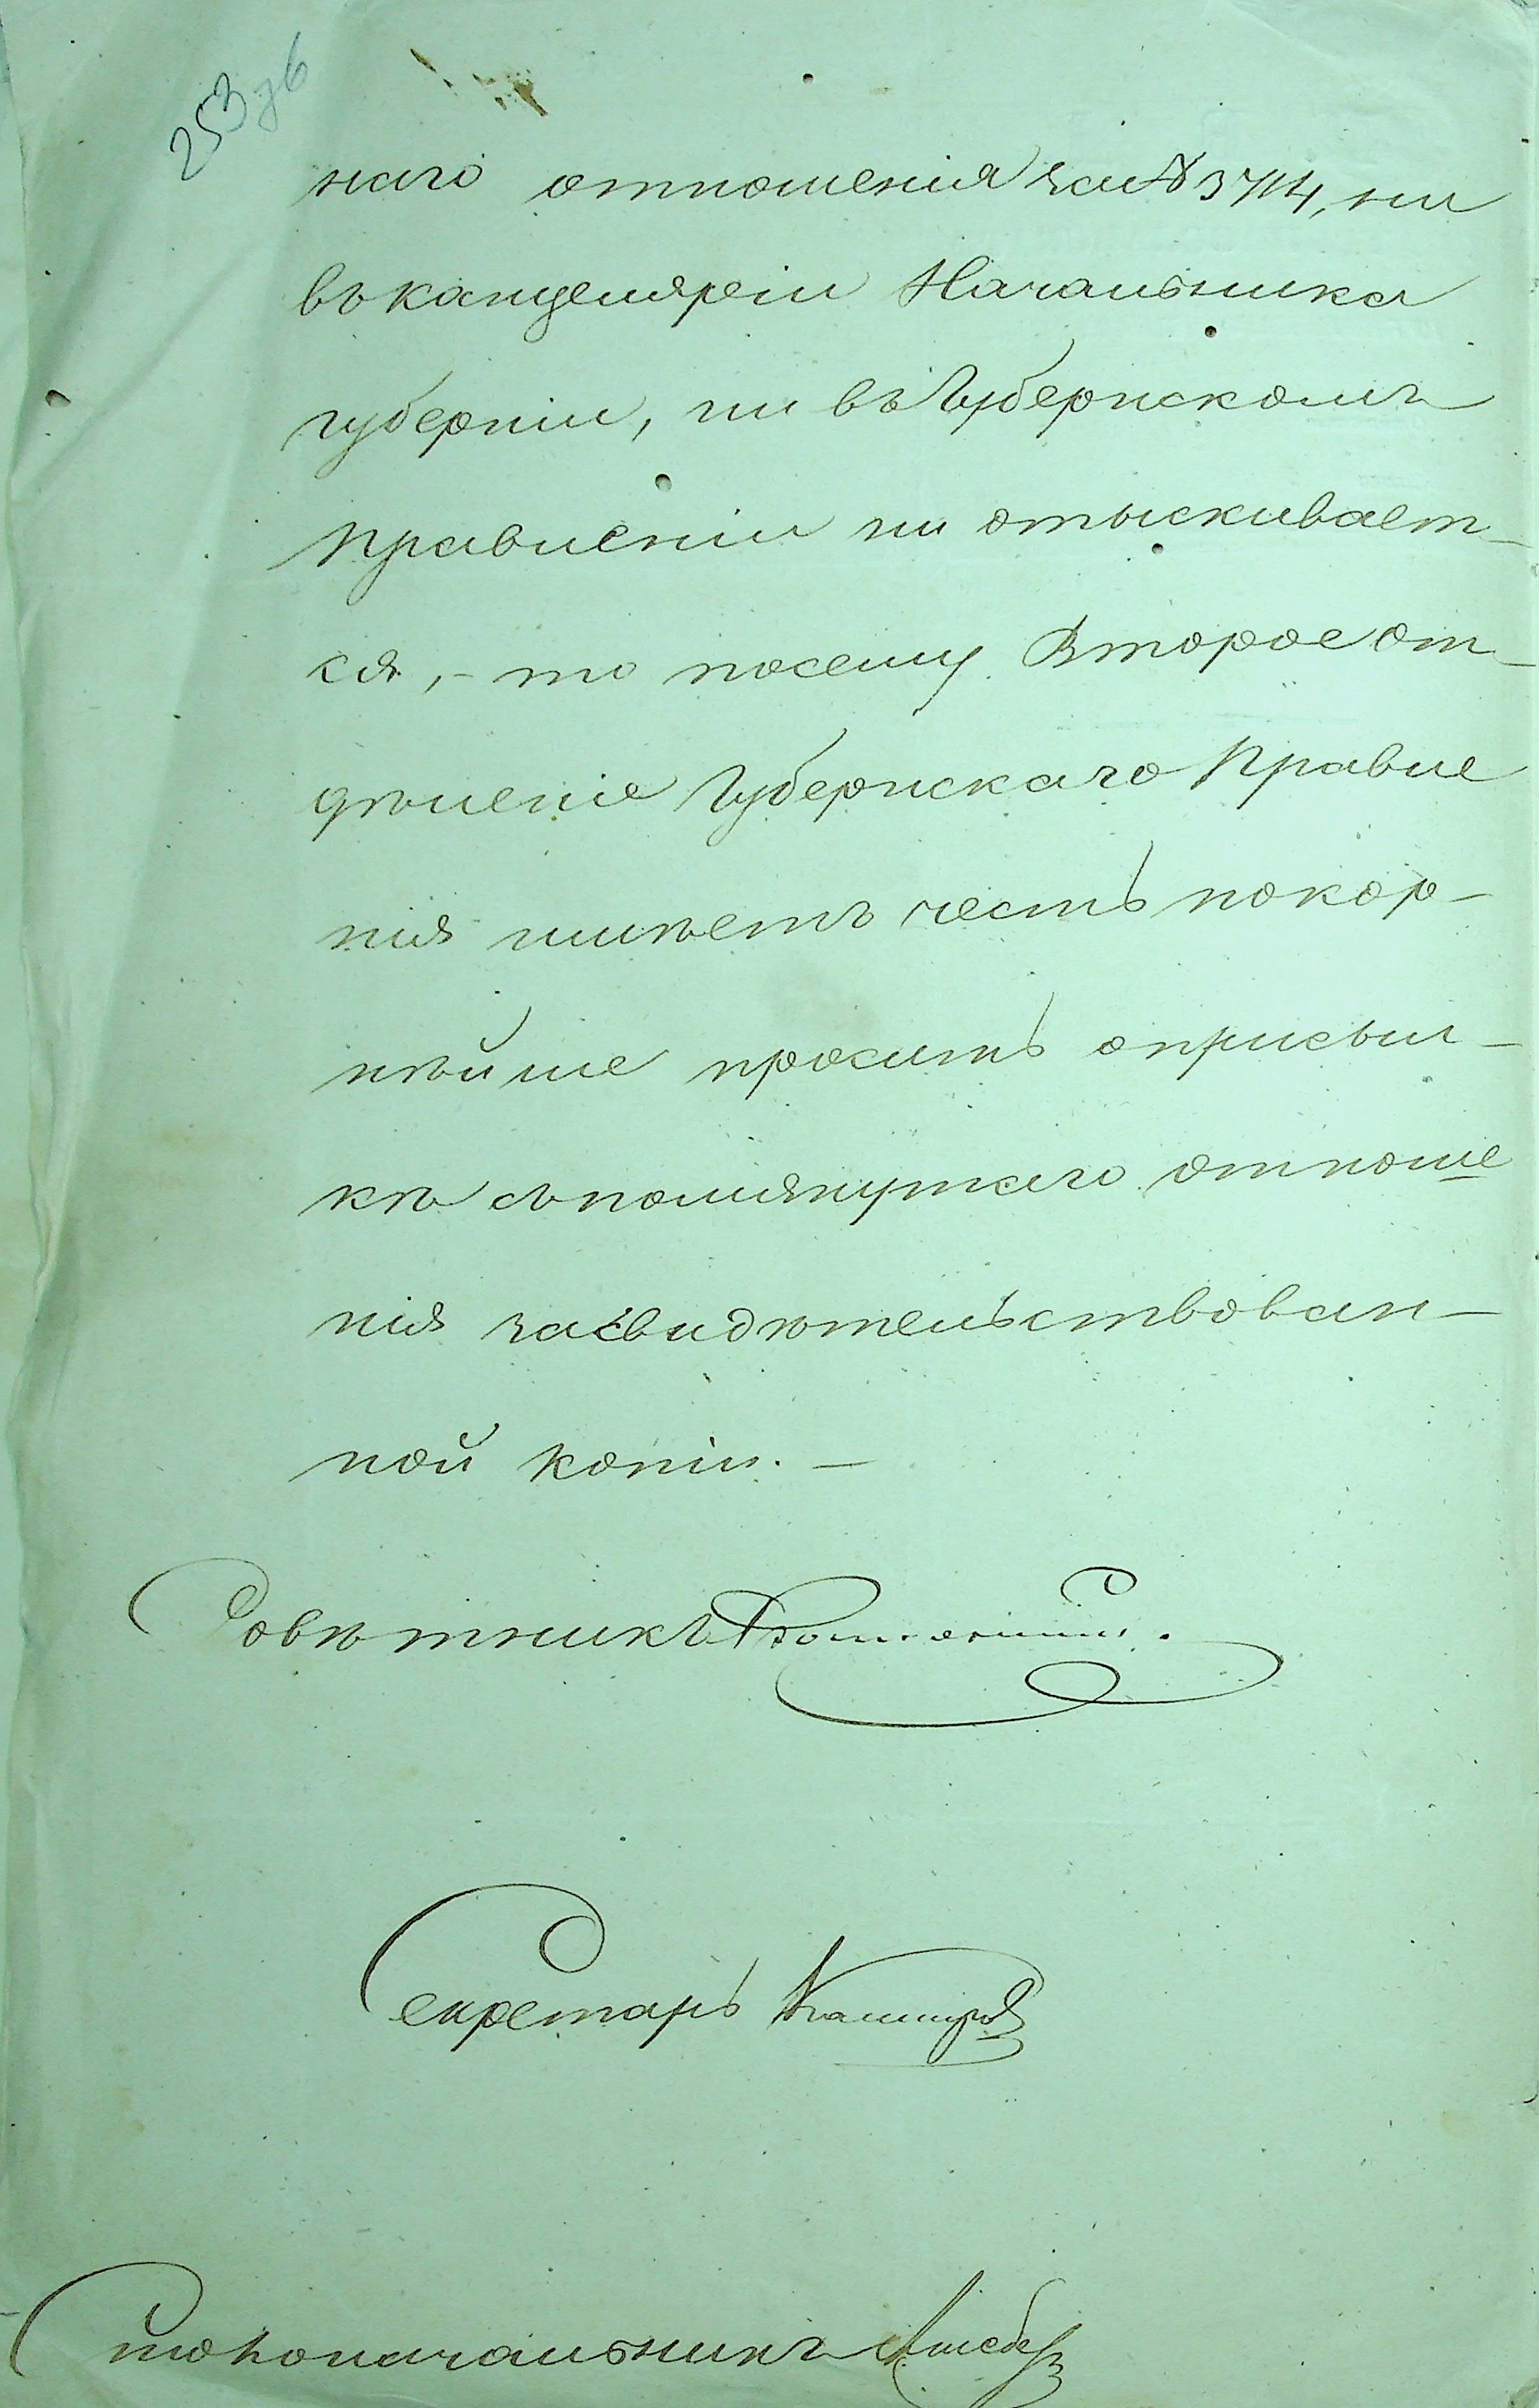 253 об
наго отношенія за № 3714, ни
въ канцеляріи Начальника
губерніи, ни въ Губернскомъ
Правленіи ни отыскивает-
ся,- то посему Второе от-
дѣленіе Губернскаго Правле
нія имѣетъ честь покор-
нѣйше просить о присыл-
кѣ съ помянутаго отноше
нія засвидѣтельствован-
ной копіи. —
Совѣтникъ
Секретарь
Столоначальникъ